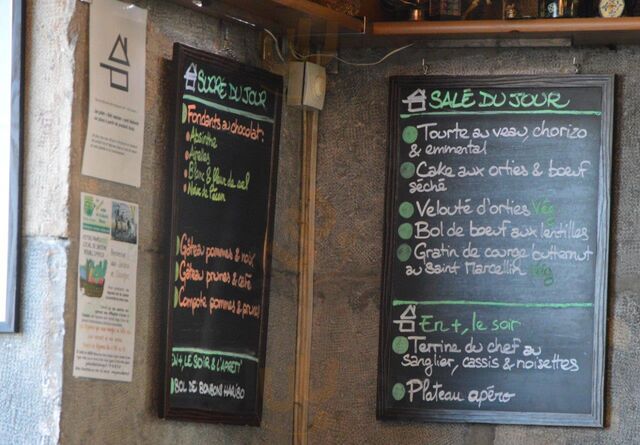 SUCRÉ DU JOUR
Fondants au chocolat:
Absinthe
Airelles
Blanc & fleur de sel
Noix de Pécan
Gâteau pommes & noix
Gâteau prunes & café
Compote pommes & prunes
EN +, LE SOIR & L'APREM'
BOL DE BONBONS HARIBO
SALÉ DU JOUR
Tourte au veau, chorizo
& emmental
Cake aux orties & boeuf
séché
Velouté d'orties Vég
Bol de boeuf aux lentilles
Gratin de courge butternut
au Saint Marcellin Vég
En +, le soir
Terrine du chef au
sanglier, cassis & noisettes
Plateau apéro